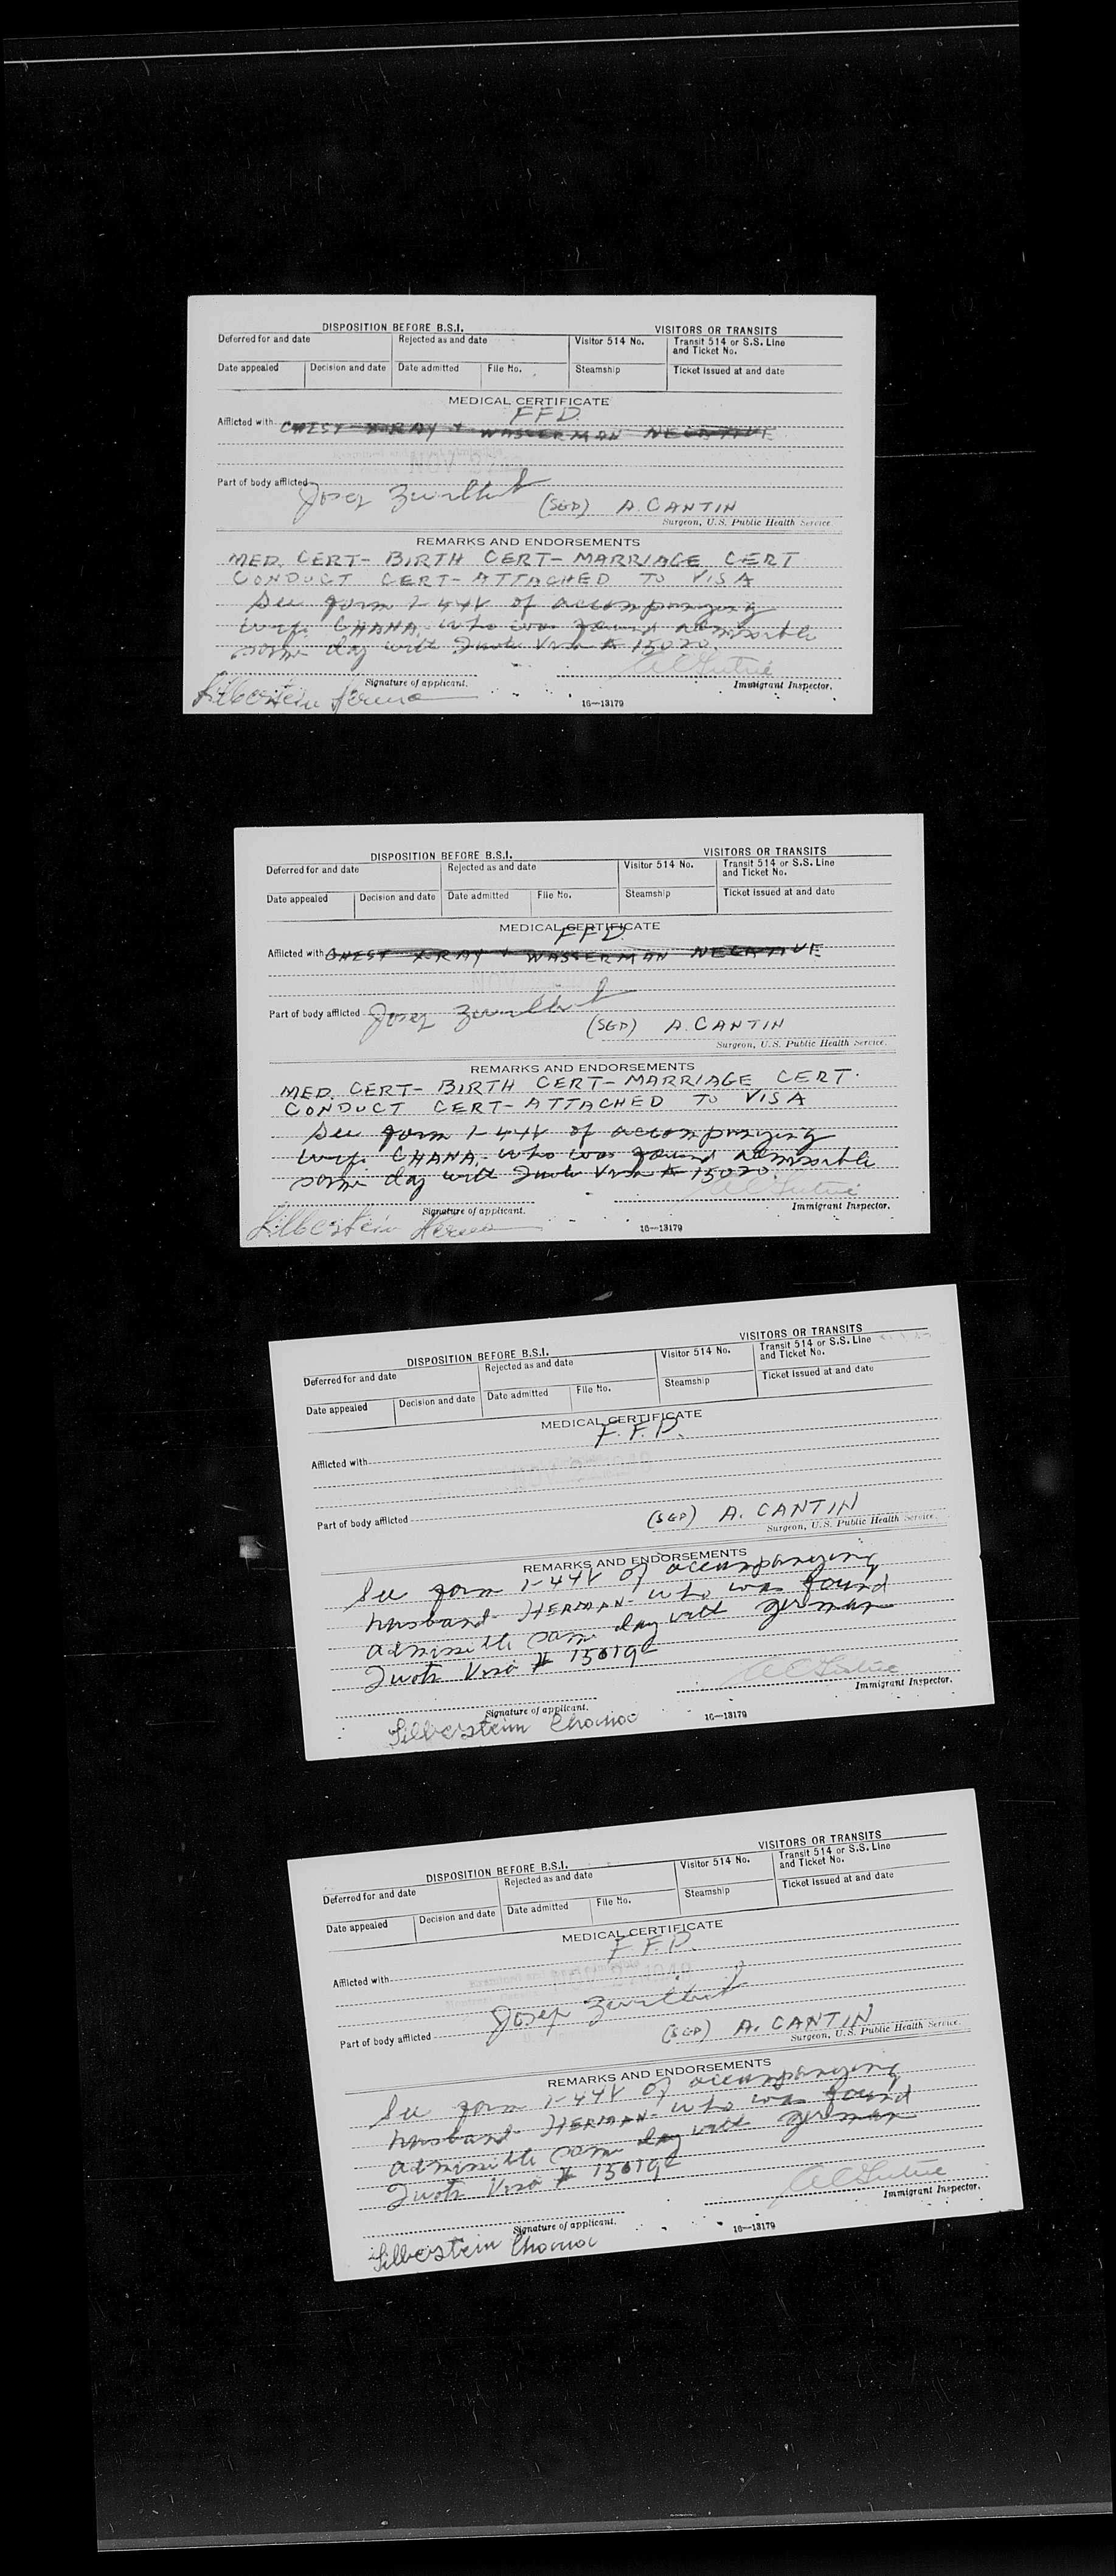 DISPOSITION BEFORE B.S.I. VISITORS OR TRANSITS
Deferred for and date Rejected as and date Visitor 514 No. Transit 514 or S.S. Line and Ticket No.
Date appealed Decision and date Date admitted File No. Steamship Ticket issued at and date
MEDICAL CERTIFICATE
FFD.
Afflicted with CHEST X-RAY + WASSERMAN NEGATIVE
Part of body afflicted
Josef
(SGD) A. CANTIN
Surgeon, U.S. Public Health Service.
REMARKS AND ENDORSEMENTS
MED. CERT- BIRTH CERT- MARRIAGE CERT
CONDUCT CERT- ATTACHED TO VISA
See form I-448 of accompanying
wife CHANA. who was found admissible
same day with Quota Visa # 15020.
Signature of applicant. Immigrant Inspector.
Silberstein
16—13179
DISPOSITION BEFORE B.S.I. VISITORS OR TRANSITS
Deferred for and date Rejected as and date Visitor 514 No. Transit 514 or S.S. Line and Ticket No.
Date appealed Decision and date Date admitted File No. Steamship Ticket issued at and date
MEDICAL CERTIFICATE
FFD.
Afflicted with CHEST X-RAY + WASSERMAN NEGATIVE
Part of body afflicted Josef
(SGD) A. CANTIN
Surgeon, U.S. Public Health Service.
REMARKS AND ENDORSEMENTS
MED. CERT- BIRTH CERT- MARRIAGE CERT.
CONDUCT CERT- ATTACHED TO VISA
See form I-448 of accompanying
wife CHANA. who was found admissible
same day with Quota Visa # 15020.
Signature of applicant. Immigrant Inspector.
Silberstein
16—13179
DISPOSITION BEFORE B.S.I. VISITORS OR TRANSITS
Deferred for and date Rejected as and date Visitor 514 No. Transit 514 or S.S. Line and Ticket No.
Date appealed Decision and date Date admitted File No. Steamship Ticket issued at and date
MEDICAL CERTIFICATE
F.F.D.
Afflicted with
Part of body afflicted
(SGD) A. CANTIN
Surgeon, U.S. Public Health Service.
REMARKS AND ENDORSEMENTS
See form I-448 of accompanying
husband- HERMAN- who was found
admissible same day with german
Quota Visa # 15019
Signature of applicant. Immigrant Inspector.
Silberstein Chana
16—13179
DISPOSITION BEFORE B.S.I. VISITORS OR TRANSITS
Deferred for and date Rejected as and date Visitor 514 No. Transit 514 or S.S. Line and Ticket No.
Date appealed Decision and date Date admitted File No. Steamship Ticket issued at and date
MEDICAL CERTIFICATE
F.F.D.
Afflicted with
Part of body afflicted Josef
(SGD) A. CANTIN
Surgeon, U.S. Public Health Service.
REMARKS AND ENDORSEMENTS
See form I-448 of accompanying
husband- HERMAN- who was found
admissible same day with german
Quota Visa # 15019
Signature of applicant. Immigrant Inspector.
Silberstein Chana
16—13179